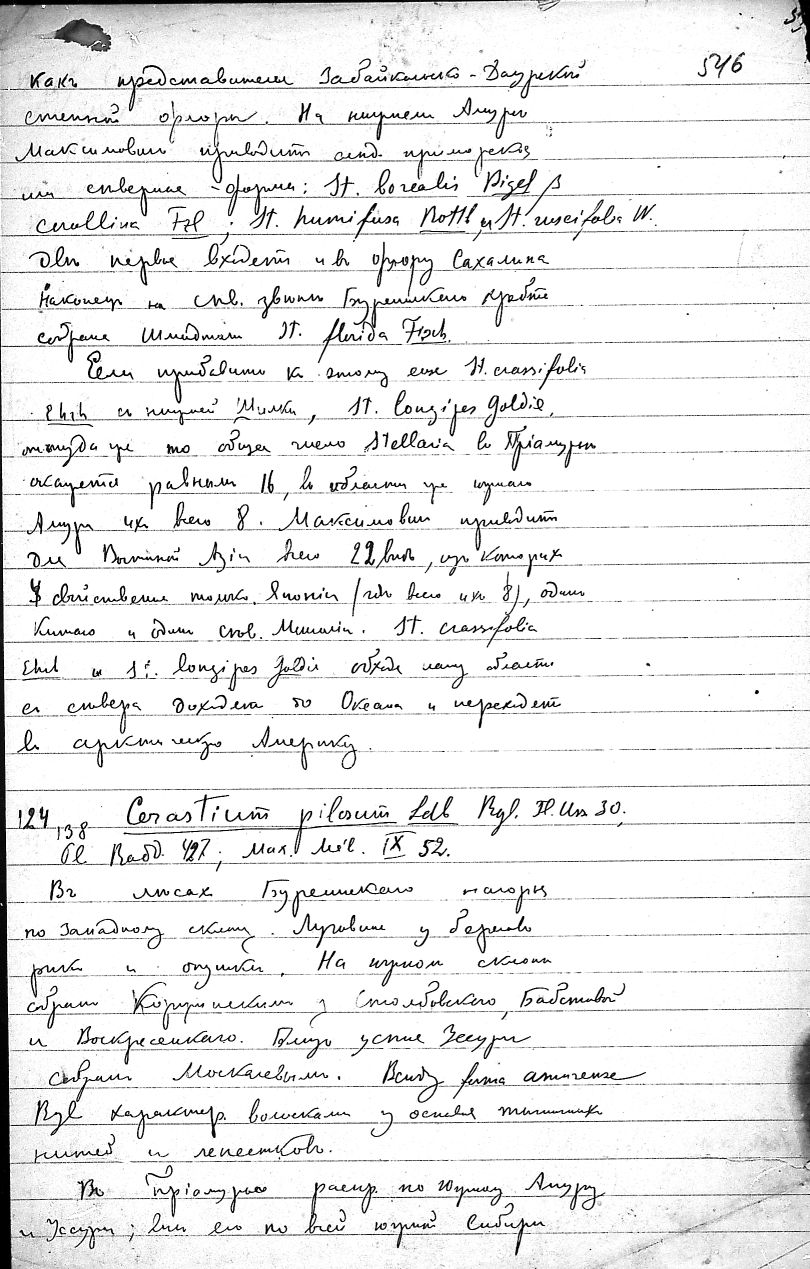 546
какъ представители Забайкальско-Даурской
степной флоры. На нижнем Амуре
Максимович приводит
или северные формы: St. borealis Bigel β
corollina Fzl; St. humifusa Rottb и St. ruscifolia W.
Две первые входят и въ флору Сахалина
Наконец на сев. Буреинского хребта
собрана Шмидтом St. florida Fisch.
Если прибавить к этому еще St. crassifolia
Ehrh с нижней, St. longipes Goldie,
откуда же то общее число Stellaria в Приамурьи
окажется равным 16, в области же южнаго
Амура их всего 8. Максимович приводит
для Восточной Азіи всего 22 вида, из которых
свойственны только Японіи (где всего их 8), один
Китаю и один сев. St. crassifolia
Ehrh и St. longipes Goldie обходя нашу область
с севера доходят до Океана и переходят
в арктическую Америку.
124 138 Cerastium pilosum Ldb Rgl. Fl. Uss 30,
Pl Radd. 427; Max. Mél. IX 52.
Въ лесах Буреинскаго нагорья
по Западному склону. Луговины у берегов
реки и опушки. На южном склоне
собрано Коржинским у Столбовского, Бабстовой
и Воскресенскаго. Близь устья Уссури
собрано Москалевым. Всюду forma amurense
Rgl характер. волосками у основ. тычиночных
нитей и лепестковъ.
Въ Приамурье распр. по южному Амуру
и Уссури; вне его по всей южной Сибири